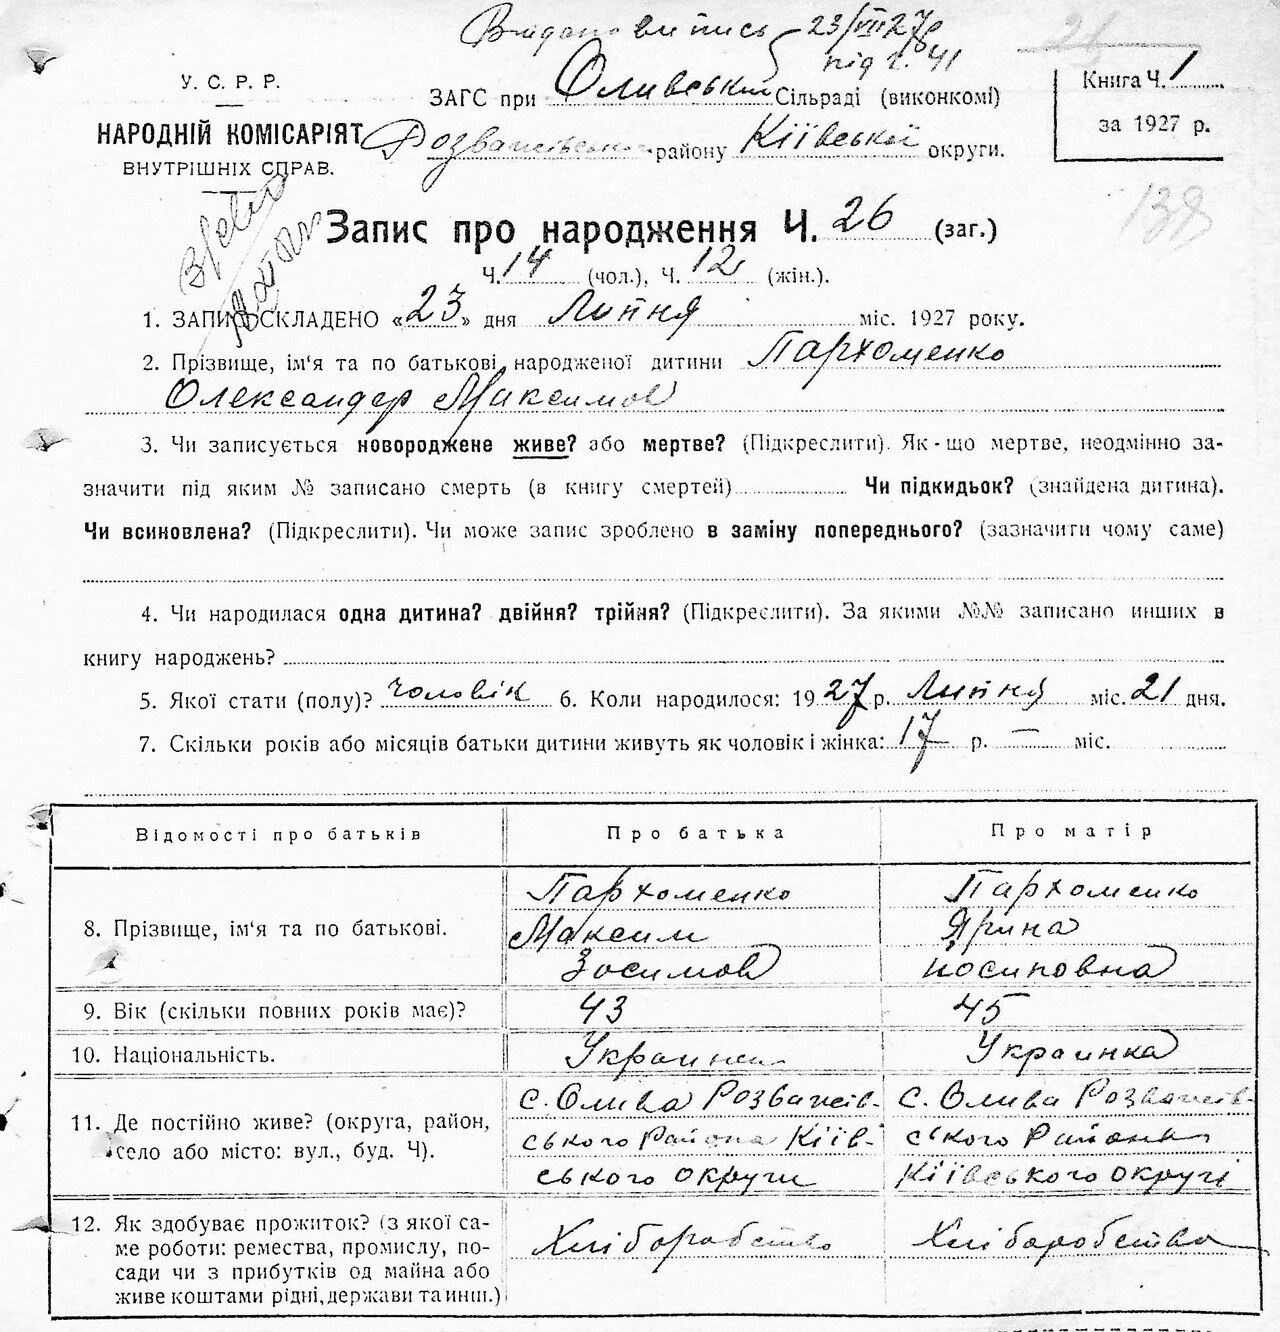 Видано випись 23/VII 27р
під ч. 41
26
У. С. Р. Р.
НАРОДНІЙ КОМІСАРІЯТ
ВНУТРІШНІХ СПРАВ.
ЗАГС при Оливській Сільраді (виконкомі)
Розважівського району Кіївської округи.
Книга Ч. 1
за 1927 р.
Запис про народження Ч. 26 (заг.)
Ч. 14 (чол.), Ч. 12 (жін.).
1. ЗАПИС СКЛАДЕНО «23» дня Липня міс. 1927 року.
2. Прізвище, ім'я та по батькові народженої дитини Пархоменко
Олександер Максимов
3. Чи записується новороджене живе? або мертве? (Підкреслити). Як-що мертве, неодмінно за-
значити під яким № записано смерть (в книгу смертей) Чи підкидьок? (знайдена дитина).
Чи всиновлена? (Підкреслити). Чи може запис зроблено в заміну попереднього? (зазначити чому саме)
4. Чи народилася одна дитина? двійня? трійня? (Підкреслити). За якими №№ записано инших в
книгу народжень?
5. Якої стати (полу)? чоловік 6. Коли народилося: 1927 р. Липня міс. 21 дня.
7. Скільки років або місяців батьки дитини живуть як чоловік і жінка: 17 р. — міс.
Відомості про батьків Про батька Про матір
8. Прізвище, ім'я та по батькові. Пархоменко Максим Зосимов Пархоменко Ярина Йосиповна
9. Вік (скільки повних років має)? 43 45
10. Національність. Украинец Украинка
11. Де постійно живе? (округа, район,
село або місто: вул., буд. Ч).
с. Олива Розважів-
ського Района Кіїв-
ського округи
с. Олива Розважів-
ського Района
Кіївського округі
12. Як здобуває прожиток? (з якої са-
ме роботи: ремества, промислу, по-
сади чи з прибутків од майна або
живе коштами рідні, держави та инш.)
Хліборобство
Хліборобство